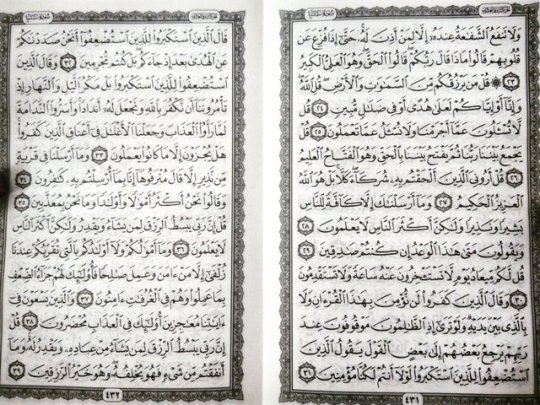 الجزء الثاني والعشرون
سورة سبإ
وَلَا تَنفَعُ ٱلشَّفَٰعَةُ عِندَهُۥٓ إِلَّا لِمَنْ أَذِنَ لَهُۥ حَتَّىٰٓ إِذَا فُزِّعَ عَن
قُلُوبِهِمْ قَالُوا۟ مَاذَا قَالَ رَبُّكُمْ قَالُوا۟ ٱلْحَقَّ وَهُوَ ٱلْعَلِىُّ ٱلْكَبِيرُ
٢٣ ۞ قُلْ مَن يَرْزُقُكُم مِّنَ ٱلسَّمَٰوَٰتِ وَٱلْأَرْضِ قُلِ ٱللَّهُ
وَإِنَّآ أَوْ إِيَّاكُمْ لَعَلَىٰ هُدًى أَوْ فِى ضَلَٰلٍ مُّبِينٍ ٢٤ قُل
لَّا تُسْـَٔلُونَ عَمَّآ أَجْرَمْنَا وَلَا نُسْـَٔلُ عَمَّا تَعْمَلُونَ ٢٥ قُلْ
يَجْمَعُ بَيْنَنَا رَبُّنَا ثُمَّ يَفْتَحُ بَيْنَنَا بِٱلْحَقِّ وَهُوَ ٱلْفَتَّاحُ ٱلْعَلِيمُ
٢٦ قُلْ أَرُونِىَ ٱلَّذِينَ أَلْحَقْتُم بِهِۦ شُرَكَآءَ كَلَّا بَلْ هُوَ ٱللَّهُ
ٱلْعَزِيزُ ٱلْحَكِيمُ ٢٧ وَمَآ أَرْسَلْنَٰكَ إِلَّا كَآفَّةً لِّلنَّاسِ
بَشِيرًا وَنَذِيرًا وَلَٰكِنَّ أَكْثَرَ ٱلنَّاسِ لَا يَعْلَمُونَ ٢٨
وَيَقُولُونَ مَتَىٰ هَٰذَا ٱلْوَعْدُ إِن كُنتُمْ صَٰدِقِينَ ٢٩
قُل لَّكُم مِّيعَادُ يَوْمٍ لَّا تَسْتَـْٔخِرُونَ عَنْهُ سَاعَةً وَلَا تَسْتَقْدِمُونَ
٣٠ وَقَالَ ٱلَّذِينَ كَفَرُوا۟ لَن نُّؤْمِنَ بِهَٰذَا ٱلْقُرْءَانِ وَلَا
بِٱلَّذِى بَيْنَ يَدَيْهِ وَلَوْ تَرَىٰٓ إِذِ ٱلظَّٰلِمُونَ مَوْقُوفُونَ عِندَ
رَبِّهِمْ يَرْجِعُ بَعْضُهُمْ إِلَىٰ بَعْضٍ ٱلْقَوْلَ يَقُولُ ٱلَّذِينَ
ٱسْتُضْعِفُوا۟ لِلَّذِينَ ٱسْتَكْبَرُوا۟ لَوْلَآ أَنتُمْ لَكُنَّا مُؤْمِنِينَ ٣١
٤٣١
الجزء الثاني والعشرون
سورة سبإ
قَالَ ٱلَّذِينَ ٱسْتَكْبَرُوا۟ لِلَّذِينَ ٱسْتُضْعِفُوٓا۟ أَنَحْنُ صَدَدْنَٰكُمْ
عَنِ ٱلْهُدَىٰ بَعْدَ إِذْ جَآءَكُم بَلْ كُنتُم مُّجْرِمِينَ ٣٢ وَقَالَ ٱلَّذِينَ
ٱسْتُضْعِفُوا۟ لِلَّذِينَ ٱسْتَكْبَرُوا۟ بَلْ مَكْرُ ٱلَّيْلِ وَٱلنَّهَارِ إِذْ
تَأْمُرُونَنَآ أَن نَّكْفُرَ بِٱللَّهِ وَنَجْعَلَ لَهُۥٓ أَندَادًا وَأَسَرُّوا۟ ٱلنَّدَامَةَ
لَمَّا رَأَوُا۟ ٱلْعَذَابَ وَجَعَلْنَا ٱلْأَغْلَٰلَ فِىٓ أَعْنَاقِ ٱلَّذِينَ كَفَرُوا۟
هَلْ يُجْزَوْنَ إِلَّا مَا كَانُوا۟ يَعْمَلُونَ ٣٣ وَمَآ أَرْسَلْنَا فِى قَرْيَةٍ
مِّن نَّذِيرٍ إِلَّا قَالَ مُتْرَفُوهَآ إِنَّا بِمَآ أُرْسِلْتُم بِهِۦ كَٰفِرُونَ ٣٤
وَقَالُوا۟ نَحْنُ أَكْثَرُ أَمْوَٰلًا وَأَوْلَٰدًا وَمَا نَحْنُ بِمُعَذَّبِينَ ٣٥
قُلْ إِنَّ رَبِّى يَبْسُطُ ٱلرِّزْقَ لِمَن يَشَآءُ وَيَقْدِرُ وَلَٰكِنَّ أَكْثَرَ ٱلنَّاسِ
لَا يَعْلَمُونَ ٣٦ وَمَآ أَمْوَٰلُكُمْ وَلَآ أَوْلَٰدُكُم بِٱلَّتِى تُقَرِّبُكُمْ عِندَنَا
زُلْفَىٰٓ إِلَّا مَنْ ءَامَنَ وَعَمِلَ صَٰلِحًا فَأُو۟لَٰٓئِكَ لَهُمْ جَزَآءُ ٱلضِّعْفِ
بِمَا عَمِلُوا۟ وَهُمْ فِى ٱلْغُرُفَٰتِ ءَامِنُونَ ٣٧ وَٱلَّذِينَ يَسْعَوْنَ فِىٓ
ءَايَٰتِنَا مُعَٰجِزِينَ أُو۟لَٰٓئِكَ فِى ٱلْعَذَابِ مُحْضَرُونَ ٣٨ قُلْ
إِنَّ رَبِّى يَبْسُطُ ٱلرِّزْقَ لِمَن يَشَآءُ مِنْ عِبَادِهِۦ وَيَقْدِرُ لَهُۥ وَمَآ
أَنفَقْتُم مِّن شَىْءٍ فَهُوَ يُخْلِفُهُۥ وَهُوَ خَيْرُ ٱلرَّٰزِقِينَ ٣٩
٤٣٢